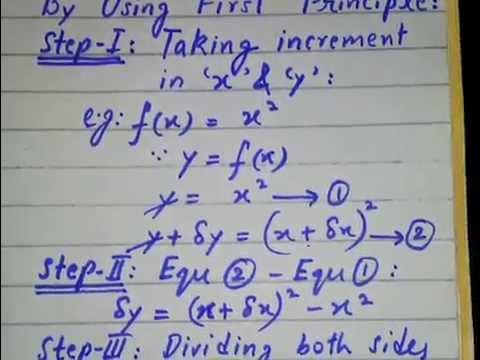 By Using First Principle:
Step-I: Taking increment
in 'x' & 'y':
e.g: f(x) = x²
∵ y = f(x)
y = x² → ①
y + δy = (x + δx)² → ②
Step-II: Equ ② - Equ ①:
δy = (x + δx)² - x²
Step-III: Dividing both sides